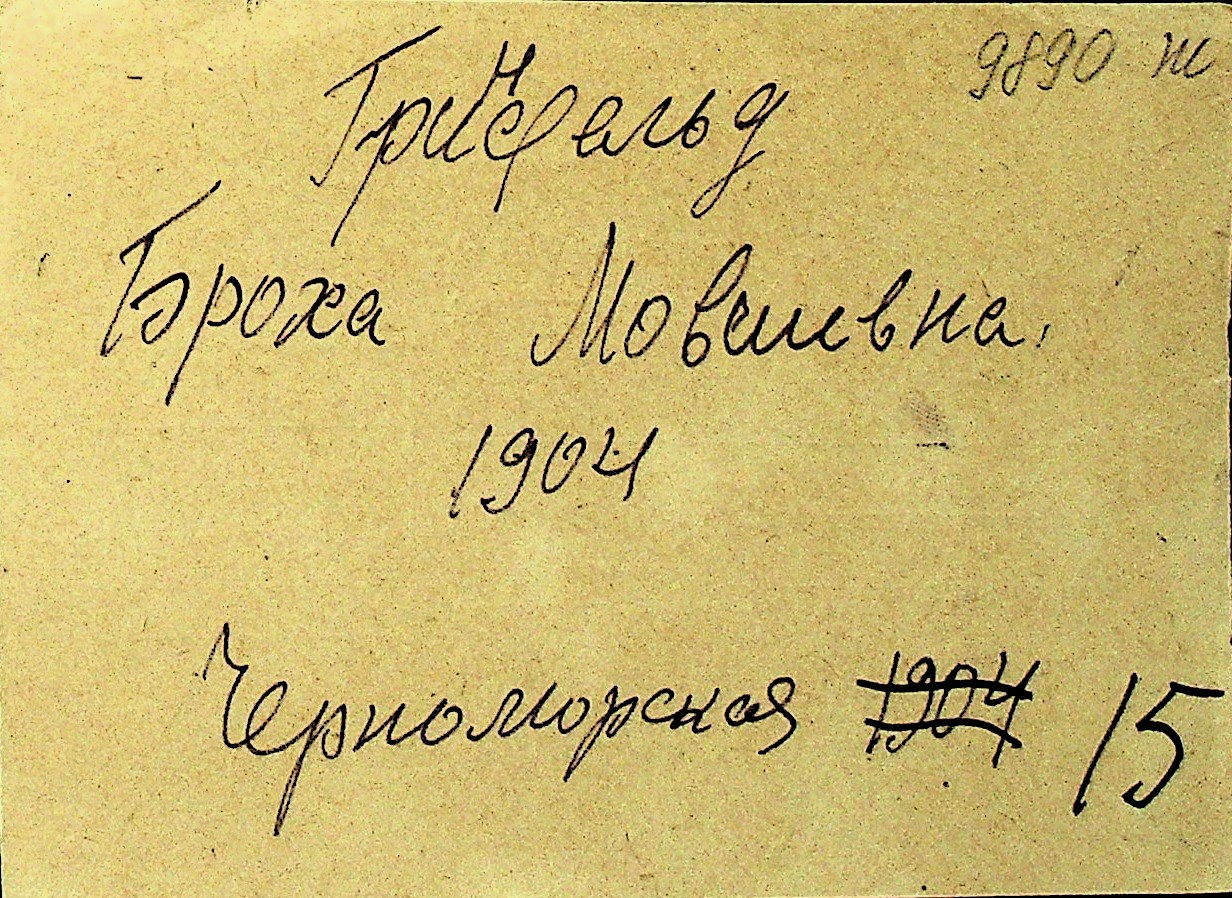 9890 ж
Гринфельд
Броха Мовшевна.
1904
Черноморская 1904 15